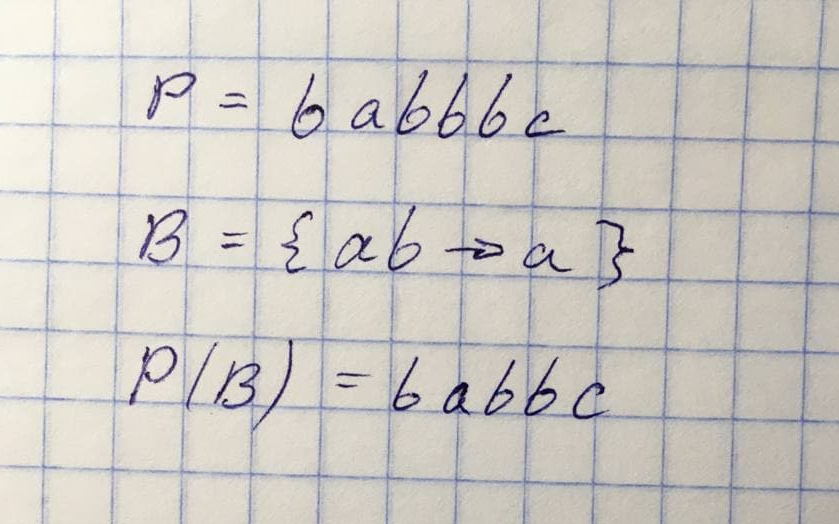 P = babbbc
B = {ab → a}
P(B) = babbc